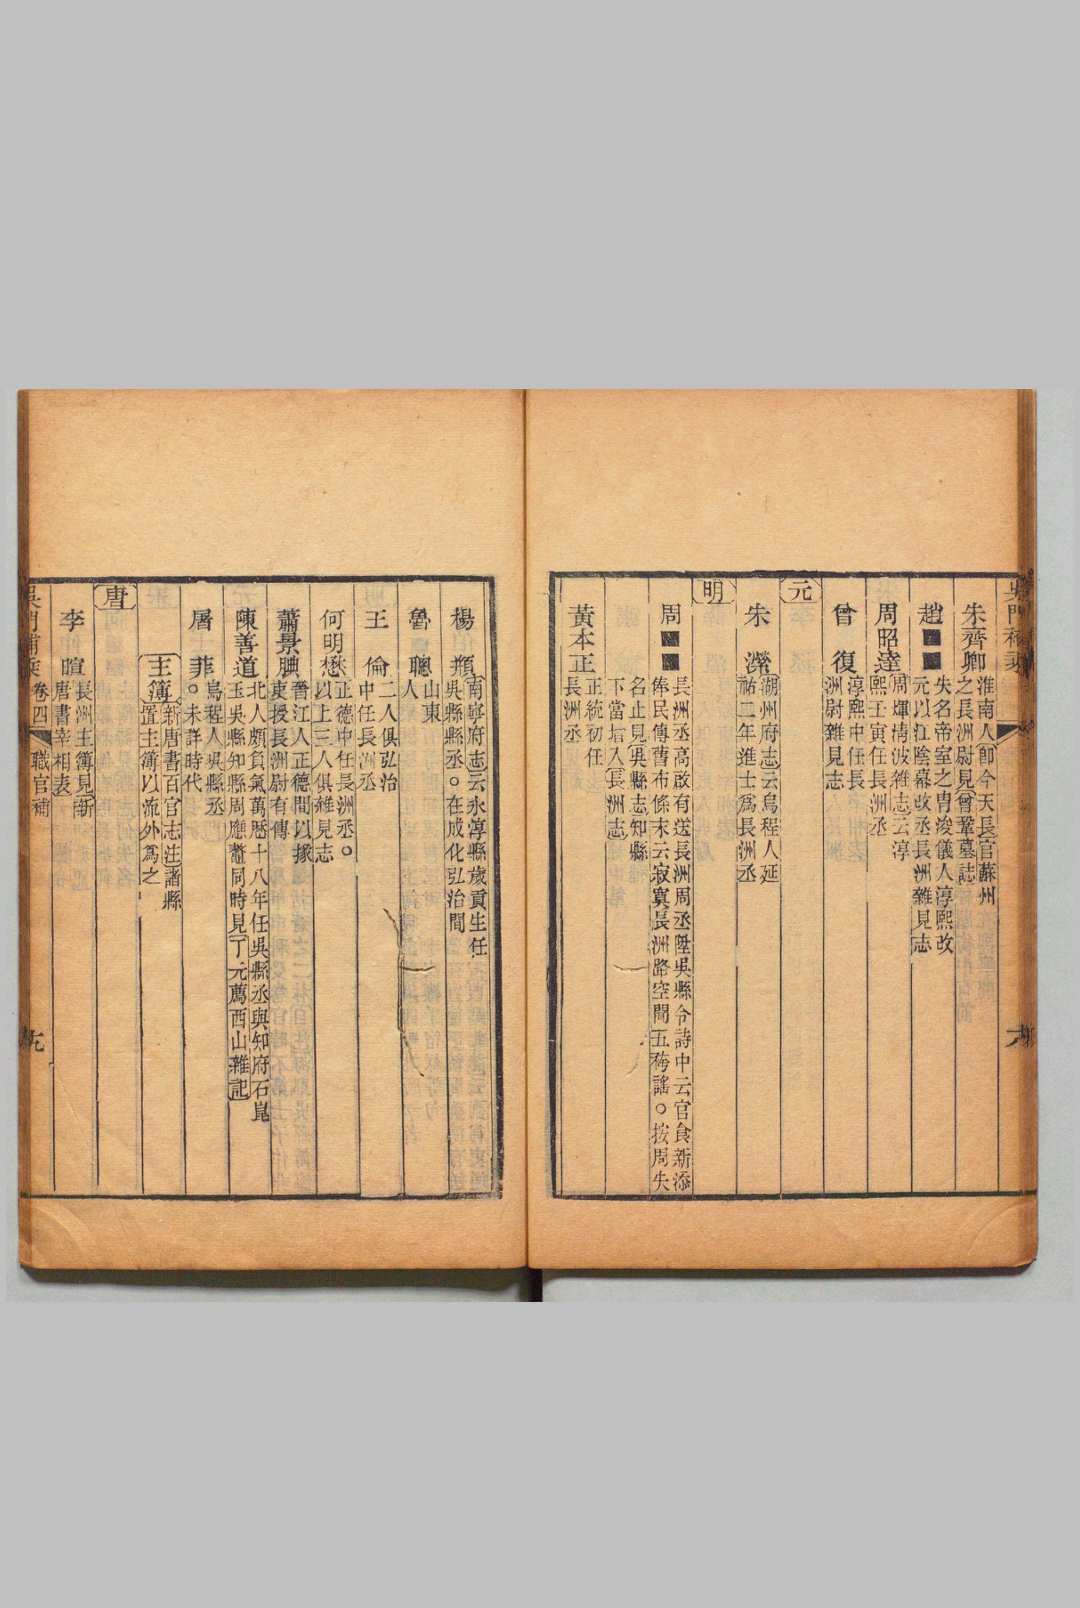 朱齊卿淮南人卽今天長官蘇州
之長洲尉見曾鞏墓誌
趙■■失名帝室之胄浚儀人淳熙改
元以江陰幕改丞長洲雜見志
周昭達周煇清波雜志云淳
熙壬寅任長洲丞
曾復淳熙中任長
洲尉雜見志
元
朱濚湖州府志云烏程人延
祐二年進士爲長洲丞
明
周■■長洲丞高啟有送長洲周丞陞吳縣令詩中云官食新添
俸民傳舊布條末云寂寞長洲路空聞五袴謠○按周失
名止見吳縣志知縣
不當培入長洲志
黃本正正統初任
長洲丞
楊瓶南寧府志云永淳縣歲貢生任
吳縣縣丞○在成化弘治間
魯聰山東
人
王倫二人俱弘治
中任長洲丞
何明懋正德中任長洲丞○
以上三人俱雜見志
蕭景腆晉江人正德間以掾
吏授長洲尉有傳
陳善道北人頗負氣萬曆十八年任吳縣丞與知府石崑
玉吳縣知縣周應鰲同時見丁元薦西山雜記
屠菲烏程人吳縣丞
○未詳時代
主簿新唐書百官志注諸縣
置主簿以流外爲之
唐
李暄長洲主簿見新
唐書宰相表
吳門補乘 卷四 職官補